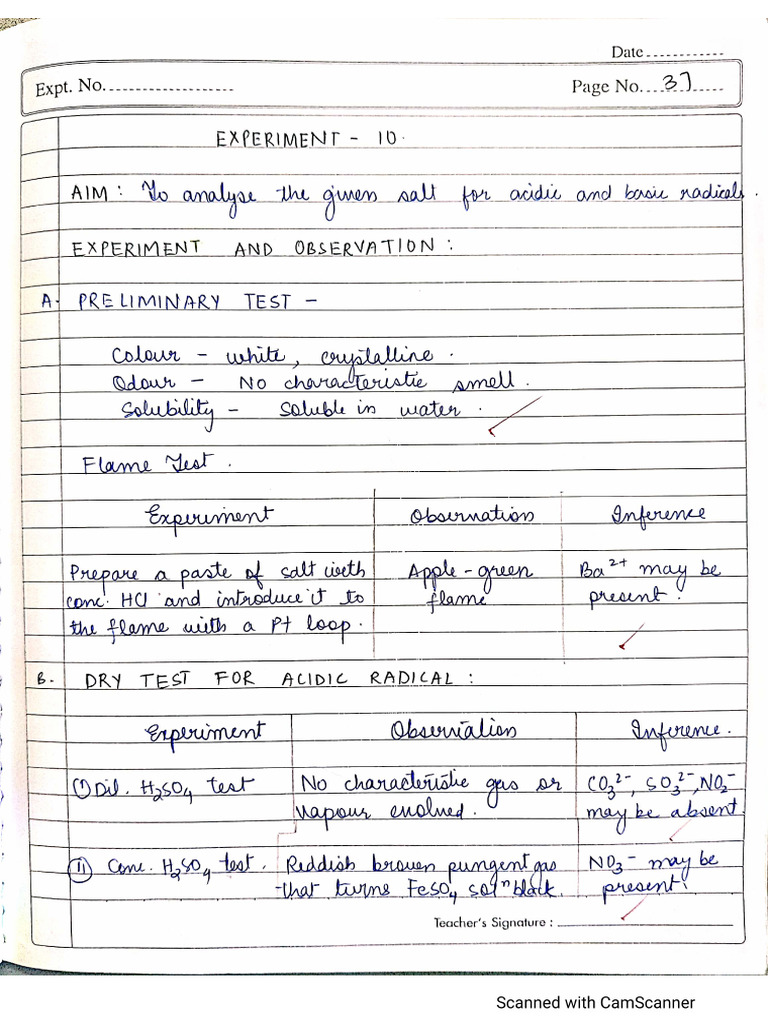 Date
Expt. No.
Page No. 37
EXPERIMENT - 10.
AIM : To analyse the given salt for acidic and basic radicals.
EXPERIMENT AND OBSERVATION :
A. PRELIMINARY TEST -
Colour - white, crystalline.
Odour - No characteristic smell.
Solubility - Soluble in water.
Flame Test.
Experiment Observation Inference
Prepare a paste of salt with Apple-green Ba²⁺ may be
conc. HCl and introduce it to flame present.
the flame with a Pt loop.
B. DRY TEST FOR ACIDIC RADICAL :
Experiment Observation Inference.
(i) Dil. H₂SO₄ test No characteristic gas or CO₃²⁻, SO₃²⁻, NO₂⁻
vapour evolved. may be absent
(ii) Conc. H₂SO₄ test. Reddish brown pungent gas NO₃⁻ may be
that turns FeSO₄ solⁿ black. present.
Teacher's Signature :
Scanned with CamScanner